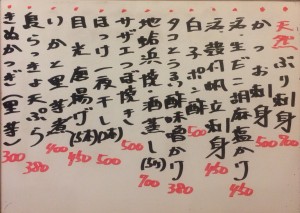 天然 ぶり刺身 900
かつお刺身 500
活・生だこ胡麻塩かり 450
活・殻付帆立刺身 450
白子ポン酢
タコとうるい酢味噌かけ 380
地蛤浜焼・酒蒸し 700
サザエつぼ焼き 500
ほっけ一夜干し 500
目光唐揚げ(5本) 450
いかと里芋煮 400
島らっきょ天ぷら 380
きぬかつぎ(里芋) 300